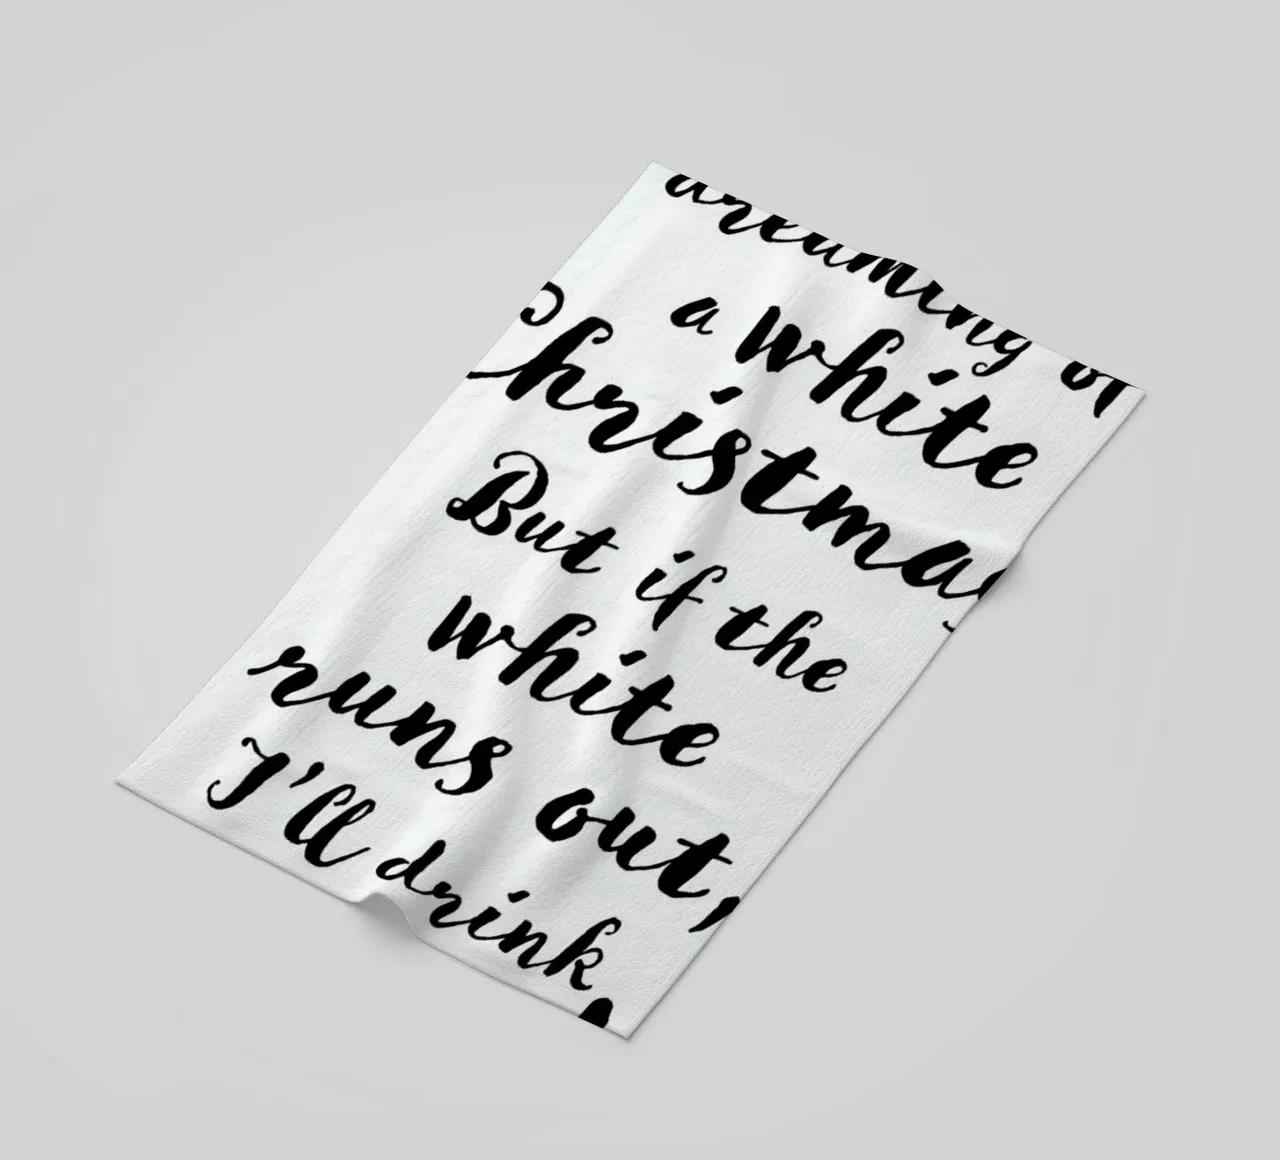 dreaming of
a white
Christmas
But if the
white
runs out,
I'll drink